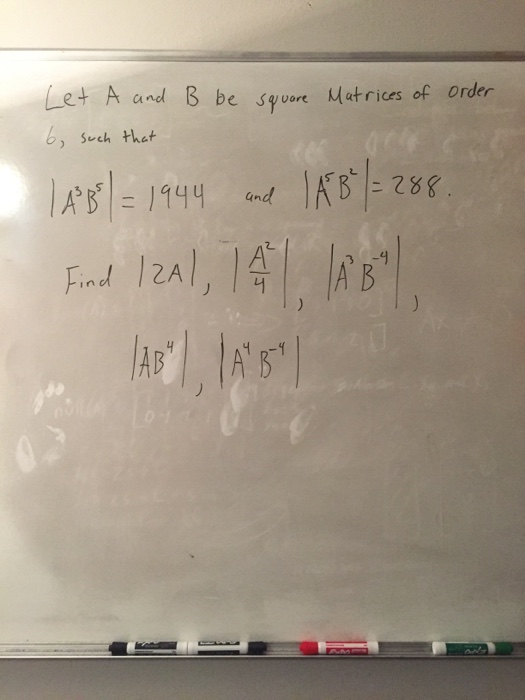 Let A and B be square Matrices of order
6, such that
|A³B⁵| = 1944 and |A⁵B²| = 288.
Find |2A|, |A²/4|, |A³B⁻⁴|,
|AB⁴|, |A⁴B⁻⁴|